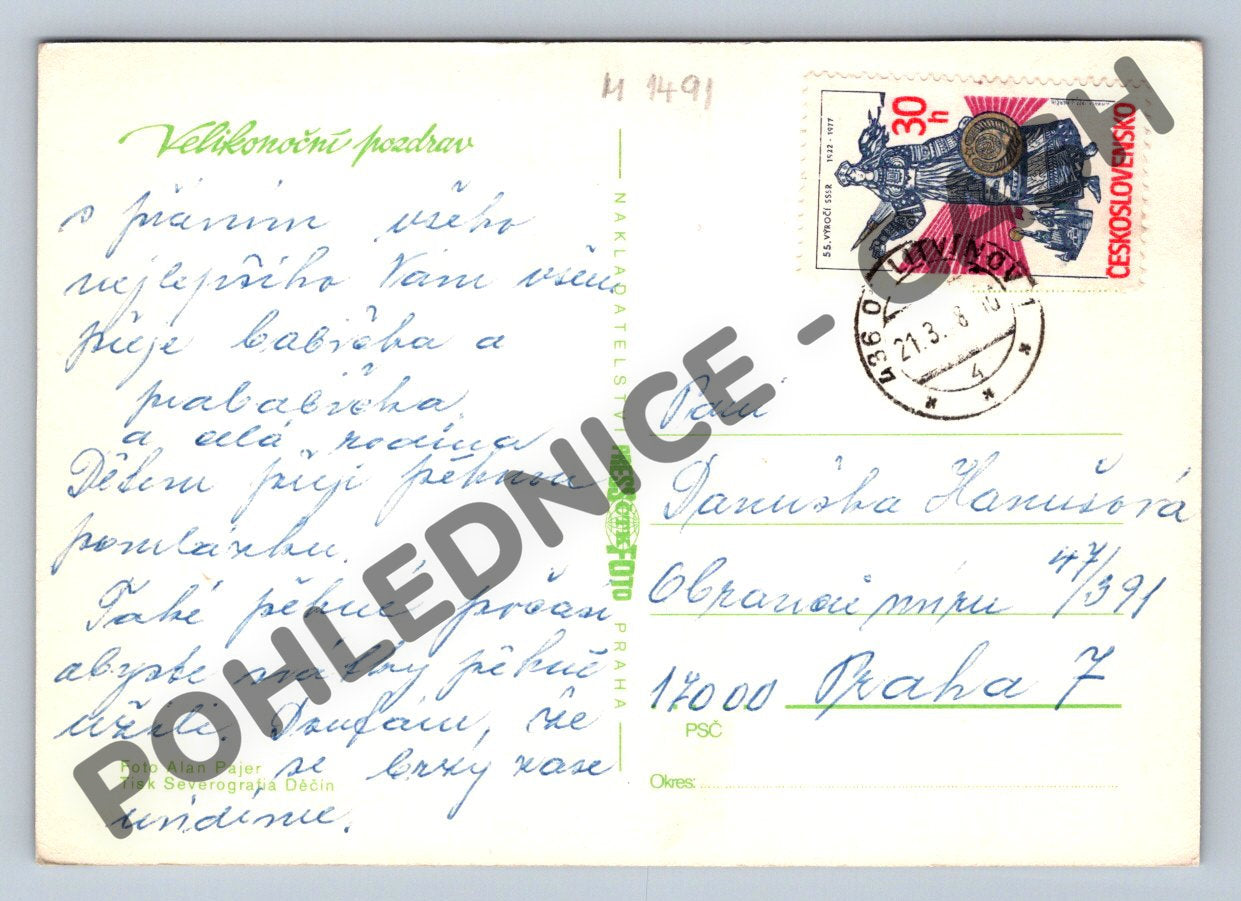 M 1491
Velikonoční pozdrav
s přáním všeho
nejlepšího Vám všem
přeje babička a
prababička
a celá rodina
Dětem přeji pěknou
pomlázku.
Také pěkné počasí
abyste svátky pěkně
užili. Doufám, že
se brzy zase
uvidíme.
Foto Alan Pajer
Tisk Severografia Děčín
NAKLADATELSTVÍ
PRESSFOTO
ČTK
PRAHA
55. VÝROČÍ SSSR 1922 - 1977
30 h
ČESKOSLOVENSKO
436 01 LITVÍNOV 1
21.3. 8 10
4
Paní
Danuška Hanušová
Obránců míru 47/391
17000 Praha 7
PSČ
Okres:
POHLEDNICE - CZECH